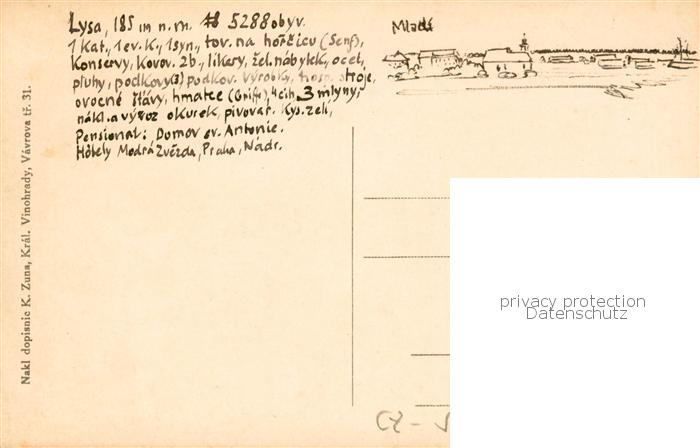 Lysa, 185 m n. m. 5288 obyv.
1 kat., 1 ev. k., 1 syn., tov. na hořčici (Senf),
Konservy, kovov. zb., likery, žel. nábytek, ocet,
pluhy, podkovy (3) podkov. výrobky, hosp. stroje,
ovocné šťávy, hmatce (Griffe), 4 cih. 3 mlýny,
nákl. a vývoz okurek, pivovar. Kys. zelí,
Pensionat: Domov sv. Antonie.
Hôtely Modrá Zvězda, Praha, Nádr.
Mladá
Nakl dopisnic K. Zuna, Král. Vinohrady, Vávrova tř. 31.
privacy protection
Datenschutz